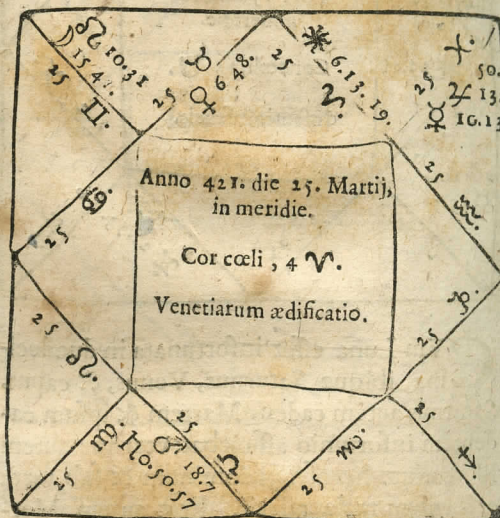 ☊ 10.31
☽ 15.41.
25 ♊.
25 ♉
♀ 6.48.
25 ☀ 6.13.19.
♈.
♓.
25 50.
♃ 13.
☿ 10.12
25 ♋.
Anno 421. die 25. Martij,
in meridie.
Cor cœli, 4 ♈.
Venetiarum ædificatio.
25 ♒.
25 ♑.
25 ♌.
25 ♍. ♄ 0.50.57
25 ♎.
♂ 18.7
25 ♏.
25 ♐.